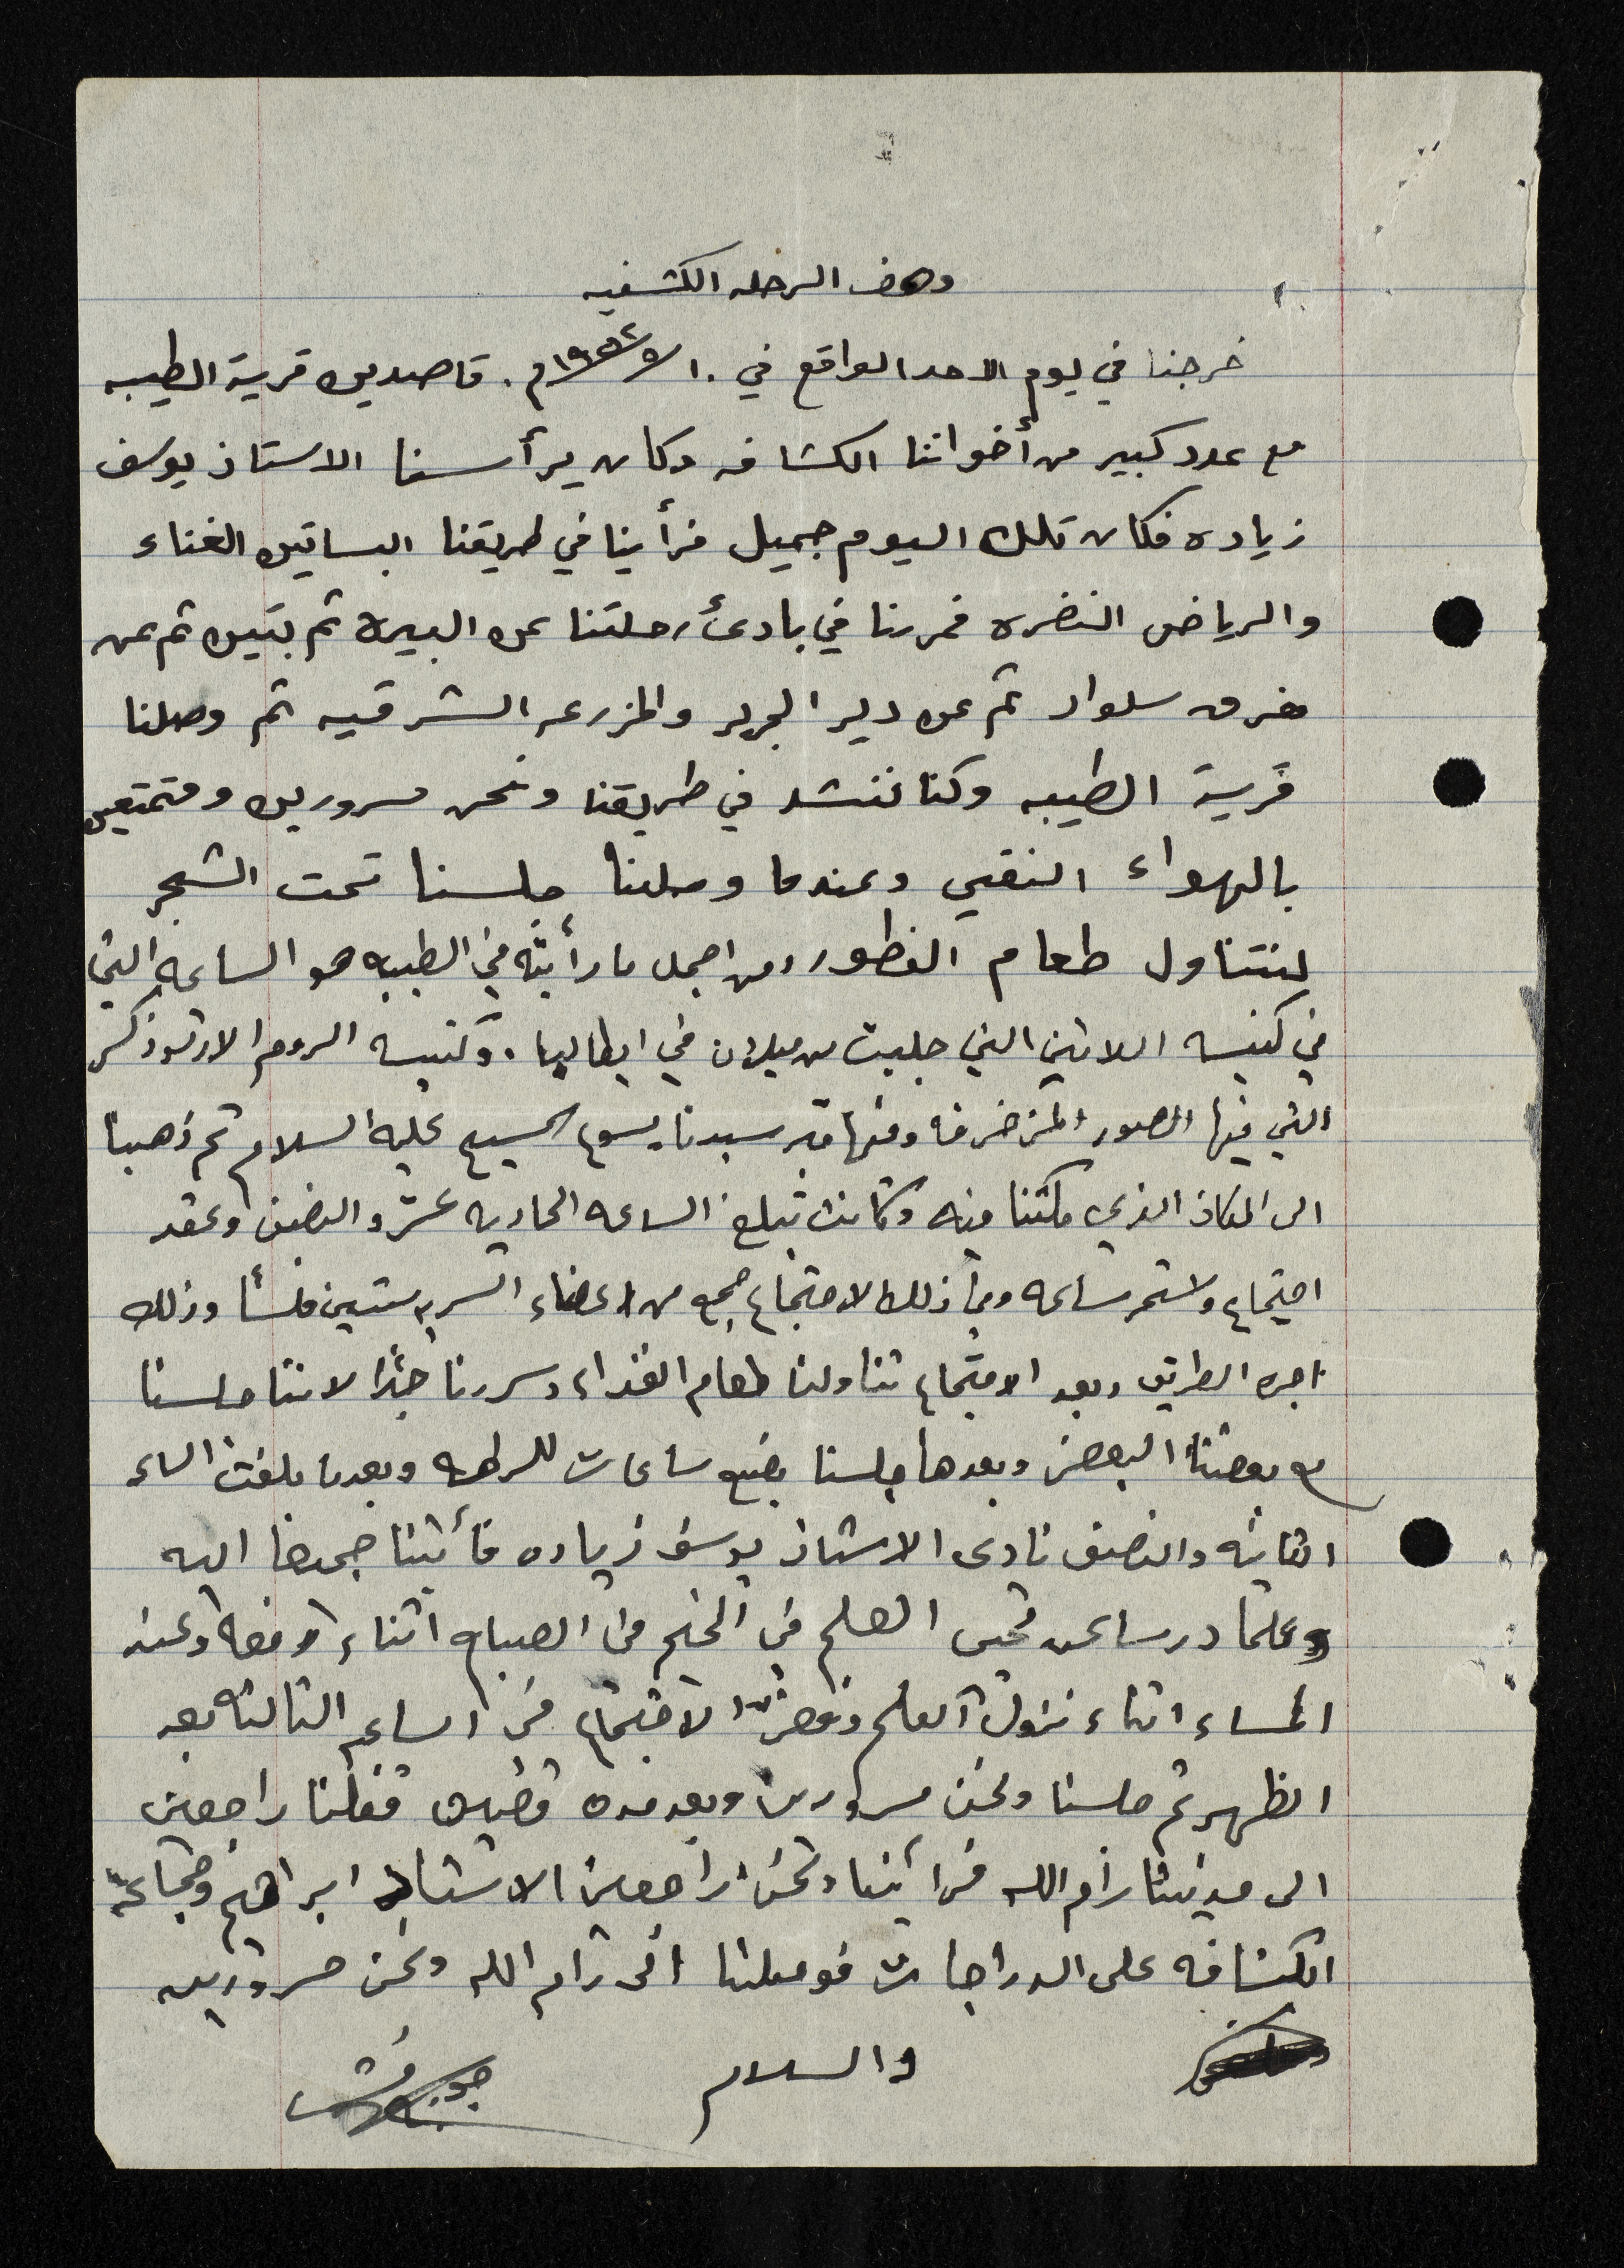 وصف الرحله الكشفيه
خرجنا في يوم الاحد الواقع في ١٠/٥/١٩٥٢م. قاصدين قرية الطيبه
مع عدد كبير من أخواننا الكشافه وكان يرأسنا الاستاذ يوسف
زياده فكان تلك اليوم جميل فرأينا في طريقنا البساتين الغناء
والرياض النضره فمررنا في بادئ رحلتنا عن البيره ثم بتين ثم عن
مفرق سلواد ثم عن دير الجرير والمزرعه الشرقيه ثم وصلنا
قرية الطيبه وكنا ننشد في طريقنا ونحن مسرورين ومتمتعين
بالهواء النقي وعندما وصلنا جلسنا تحت الشجر
لنتناول طعام الفطور ومن اجمل ما رأيته في الطيبه هو الساعه التي
في كنيسه اللاتين التي جلبت من ميلان في ايطاليا. وكنيسه الروم الارثوذكس
التي فيها الصور المزخرفه وفيها قبر سيدنا يسوع المسيح عليه السلام ثم ذهبنا
الى المكان الذي مكثنا فيه وكانت تبلغ الساعه الحاديه عشر والنصف وعقد
اجتماع واستمر ساعه وفي ذلك الاجتماع جمع من اعضاء السريه ستين فلسأ وذلك
اجره الطريق وبعد الاجتماع تناولنا طعام الغداء وسررنا جدا لاننا جلسنا
مع بعضنا البعض وبعدها جلسنا بضع ساعات للراحه وبعدما بلغت الساعه
الثانيه والنصف نادى الاستاذ يوسف زياده فأتينا جميعنا اليه
وعلمنا درسا عن تحيى العلم في المخيم في الصباح اثناء رفعه وعند
المساء اثناء نزول العلم وفض الاجتماع في الساعه الثالثه بعد
الظهر ثم جلسنا ونحن مسرورين وبعد مده قصيره قفلنا راجعين
الى مدينتنا رام الله فرأينا ونحن راجعين الاستاذ ابراهيم وجماعة
الكشافه على الدراجات فوصلنا الى رام الله ونحن مسرورين
والسلام